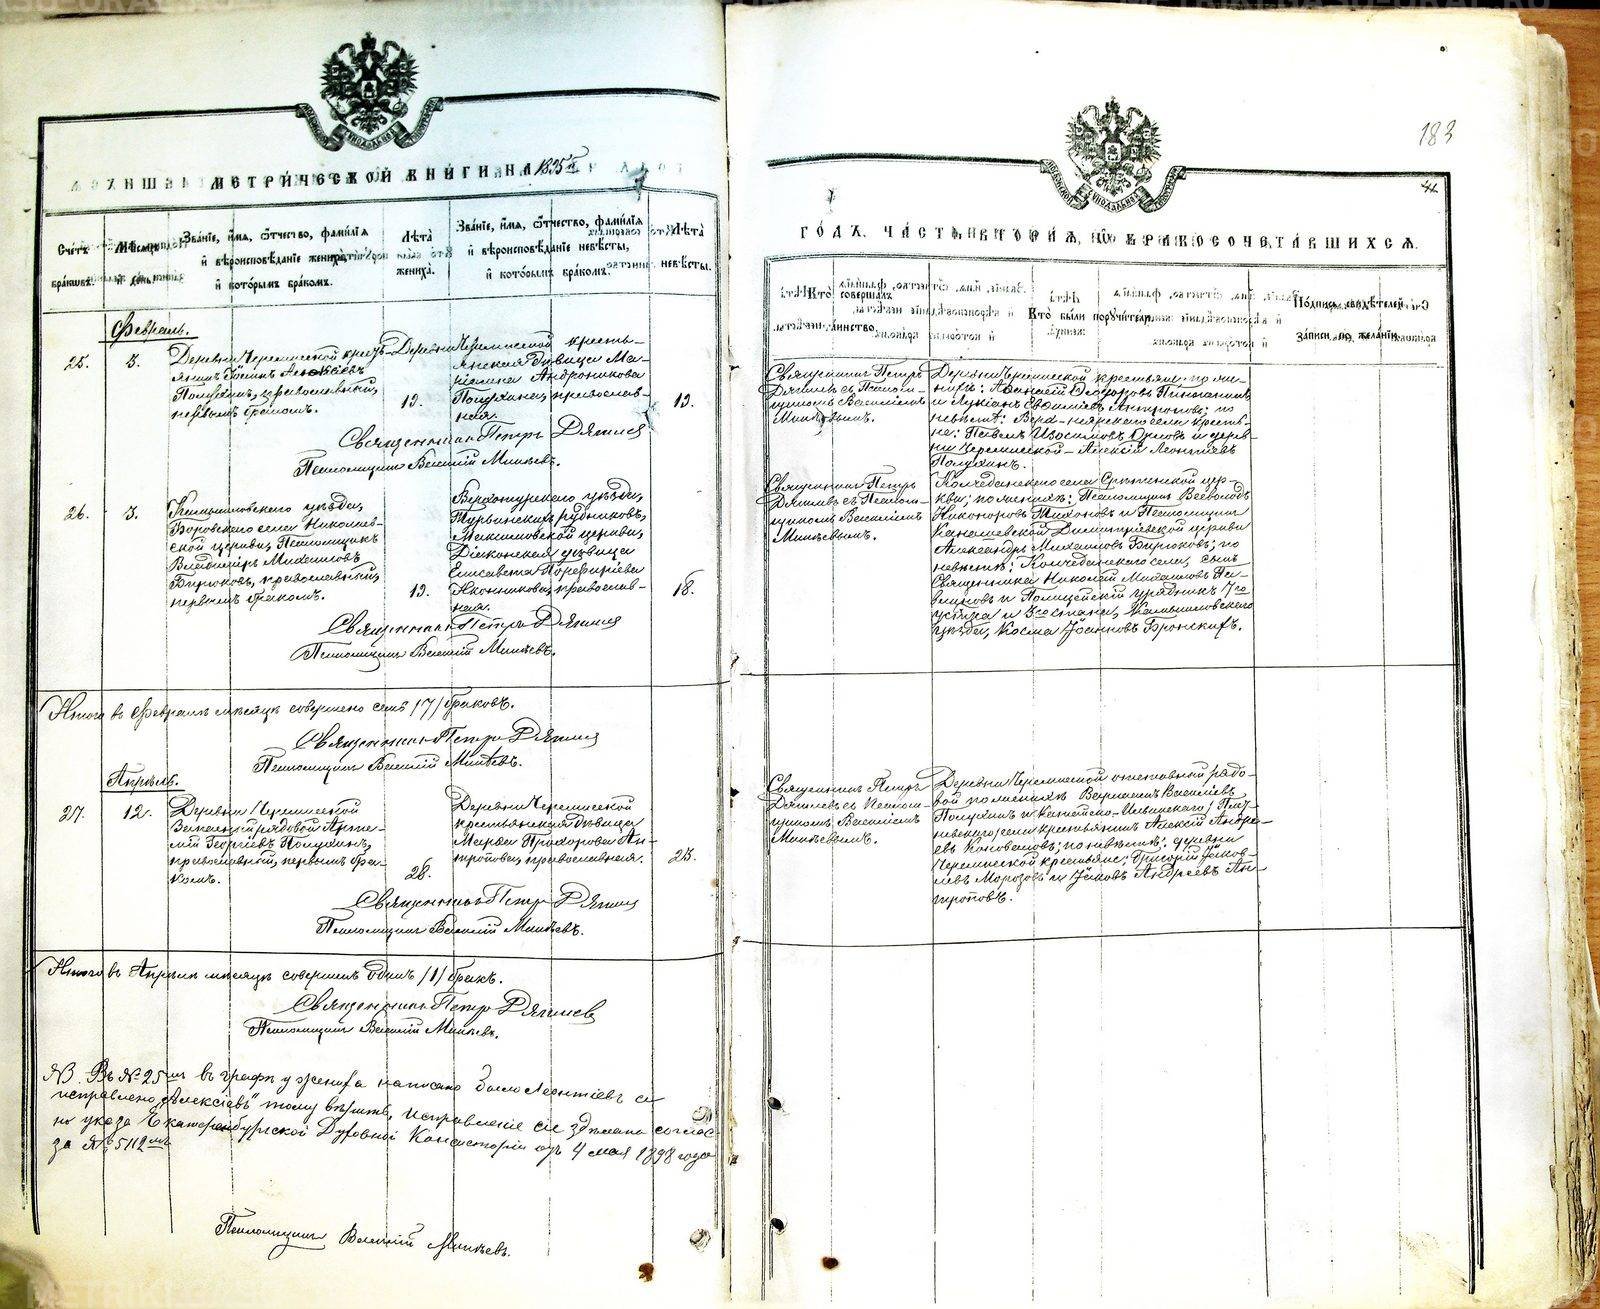 МЕТРИЧЕСКОЙ КНИГИ НА 1895й
Счетъ браковъ.
Мѣсяцъ и день.
Званіе, имя, отчество, фамилія и вѣроисповѣданіе жениха, и которымъ бракомъ.
Лѣта жениха.
Званіе, имя, отчество, фамилія и вѣроисповѣданіе невѣсты, и которымъ бракомъ.
Лѣта невѣсты.
Февраль.
25.
3.
Деревни Черемисской кресть-
янинъ Іоаннъ Алексіевъ
Полухинъ, православный,
первымъ бракомъ.
19.
Деревни Черемисской кресть-
янская дѣвица Ма-
Андроникова
Полухина, православ-
ная.
19.
Священникъ Петръ Дягилев
Псаломщикъ Василій Минѣевъ.
26.
3.
Камышловскаго уѣзда,
Боровскаго села Николаев-
ской церкви, Псаломщикъ
Владиміръ Михаиловъ
Бирюковъ, православный,
первымъ бракомъ.
19.
Верхотурскаго уѣзда,
Турьинскихъ рудниковъ,
Максимовской церкви,
Діаконская дѣвица
Елисавета Порфиріева
Иконникова, православ-
ная.
18.
Священникъ Петръ Дягилев
Псаломщикъ Василій Минѣевъ.
Итого въ Февралѣ мѣсяцѣ совершено семь /7/ браковъ.
Священникъ Петръ Дягилев
Псаломщикъ Василій Минѣевъ.
Апрѣль.
27.
12.
Деревни Черемисской
Запасный рядовой Арте-
мій Георгіевъ Полухинъ,
православный, первымъ бра-
комъ.
28.
Деревни Черемисской
крестьянская дѣвица
Марѳа Прохорова Ан-
тропова, православная.
23.
Священникъ Петръ Дягилев
Псаломщикъ Василій Минѣевъ.
Итого въ Апрѣлѣ мѣсяцѣ совершенъ одинъ /1/ бракъ.
Священникъ Петръ Дягилев
Псаломщикъ Василій Минѣевъ.
NB. Въ № 25мъ въ графѣ у жениха написано было Леонтіевъ а
исправлено „Алексіевъ" тому вѣрить, исправленіе сіе здѣлано соглас-
но указа Екатеринбургской Духовной Консисторіи отъ 4 мая 1898 года
за № 5112мъ
Псаломщикъ Василій Минѣевъ.
183
ГОДЪ, ЧАСТЬ ВТОРАЯ, О БРАКОСОЧЕТАВШИХСЯ.
Кто совершалъ таинство.
Кто были поручители.
Подпись свидѣтелей записи по желанію.
Священникъ Петръ
Дягилевъ съ Псалом-
щикомъ Василіемъ
Минѣевымъ.
Деревни Черемисской крестьяне: по же-
нихѣ:
и Лукіанъ Евѳиміевъ Антроповъ; по
невѣстѣ: Верх- села кресть-
не: Павелъ Изосимовъ Орловъ и дерев-
ни Черемисской - Алексій Леонтіевъ
Полухинъ.
Священникъ Петръ
Дягилевъ съ Псалом-
щикомъ Василіемъ
Минѣевымъ.
Колчеданскаго села Срѣтенской цер-
кви; по женихѣ: Псаломщикъ Всеволодъ
Никаноровъ Тихоновъ и Псаломщикъ
Димитріевской церкви
Александръ Михаиловъ Бирюковъ; по
невѣстѣ: Колчеданскаго села, сынъ
Священника Николай Михаиловъ
и Полицейскій урядникъ 17го
участка и 3го стана, Камышловскаго
уѣзда, Косма Іоанновъ Бронскихъ.
Священникъ Петръ
Дягилевъ съ Псалом-
щикомъ Василіемъ
Минѣевымъ.
Деревни Черемисской отставный рядо-
вой по женихѣ Варлаамъ Василіевъ
Полухинъ и
села крестьянинъ Алексій Андре-
евъ Коноваловъ; по невѣстѣ: деревни
Черемисской крестьяне; Григорій Іаков-
левъ Морозовъ и Іаковъ Андреевъ Ан-
троповъ.